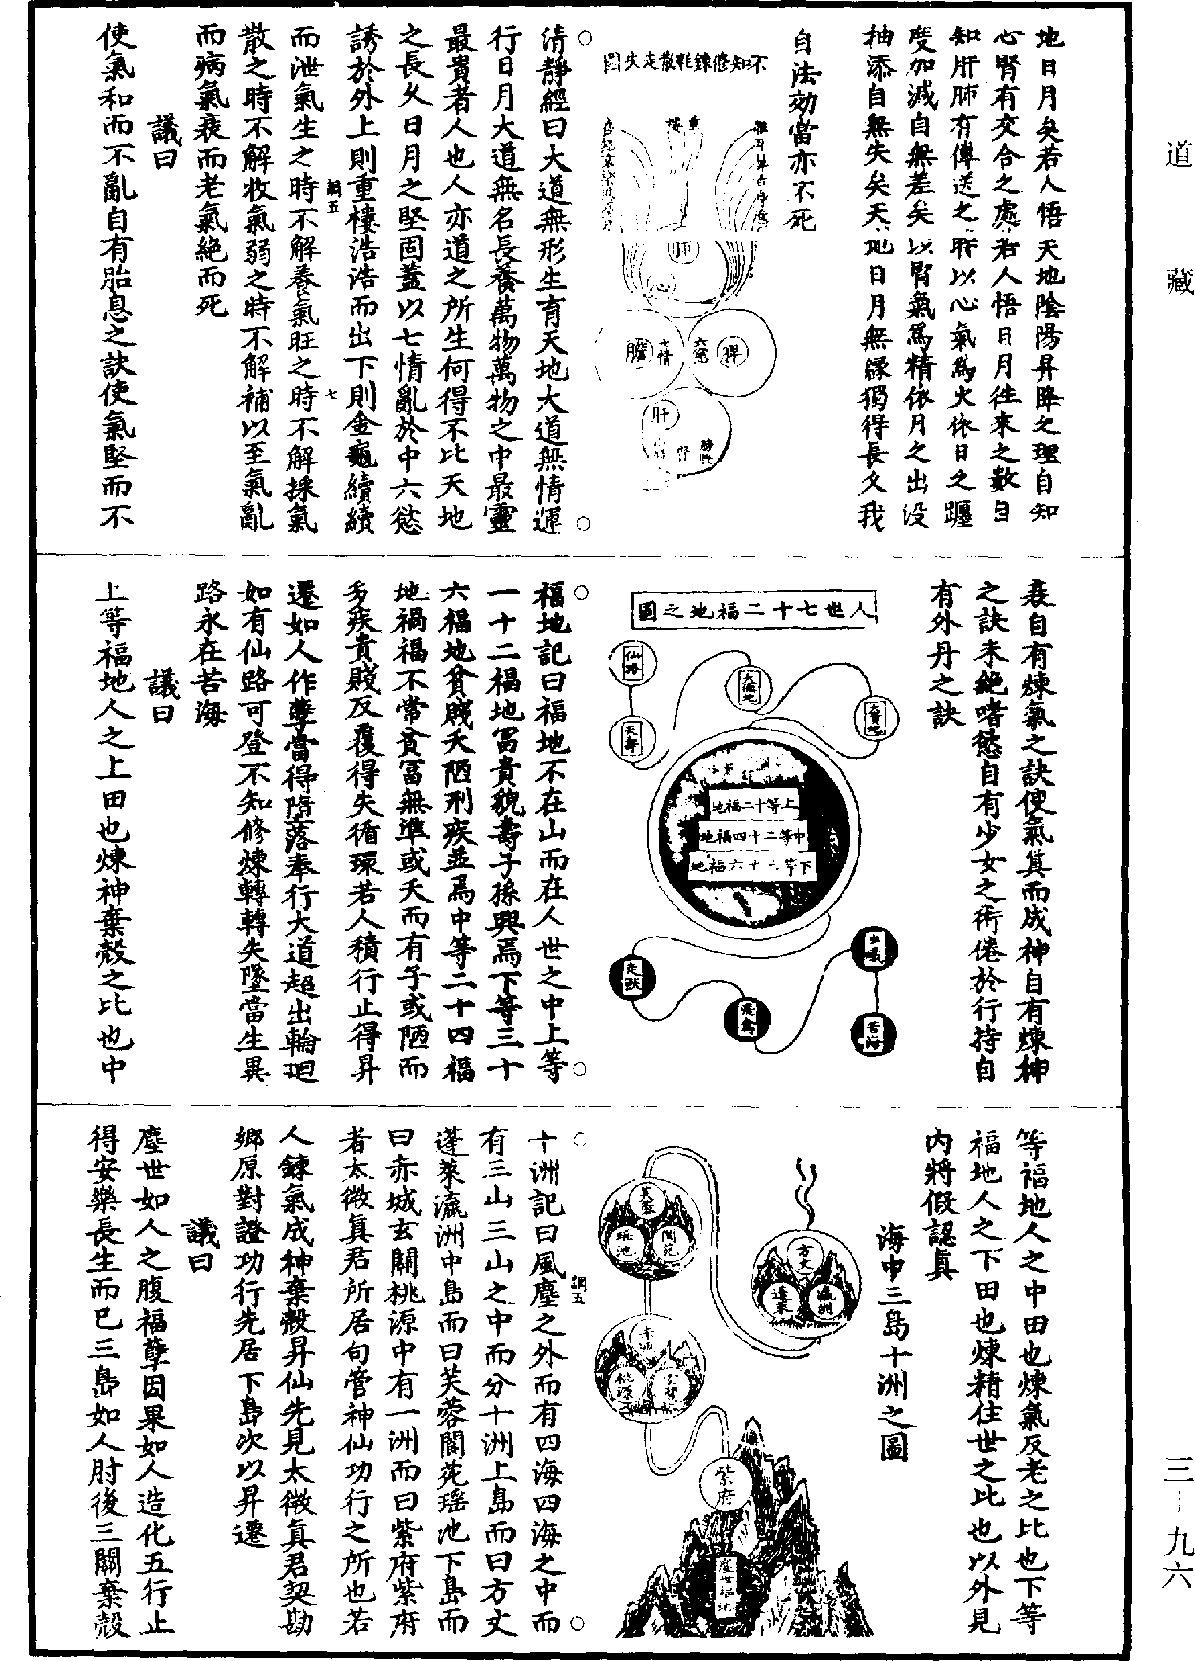 道藏
三-九六
地日月矣若人悟天地陰陽昇降之理自知
心腎有交合之處若人悟日月往來之數自
知肝肺有傳送之時以心氣爲火依日之躔
度加減自無差矣以腎氣爲精依月之出没
抽添自無失矣天地日月無緣獨得長久我
自法効當亦不死
不知修鍊耗散走失圖
重樓
肺
膽
七情
六慾
脾
肝
腎
清靜經曰大道無形生育天地大道無情運
行日月大道無名長養萬物萬物之中最靈
最貴者人也人亦道之所生何得不比天地
之長久日月之堅固蓋以七情亂於中六慾
誘於外上則重樓浩浩而出下則金龜續續
而泄氣生之時不解養氣旺之時不解採氣
調五
七
散之時不解收氣弱之時不解補以至氣亂
而病氣衰而老氣絶而死
議曰
使氣和而不亂自有胎息之訣使氣堅而不
衰自有煉氣之訣使氣真而成神自有煉神
之訣未絶嗜慾自有少女之術倦於行持自
有外丹之訣
人世七十二福地之圖
仙路
天壽
上等十二福地
中等二十四福地
下等三十六福地
苦海
福地記曰福地不在山而在人世之中上等
一十二福地冨貴貌壽子孫興焉下等三十
六福地貧賤夭陋刑疾並焉中等二十四福
地禍福不常貧冨無準或夭而有子或陋而
多疾貴賤反覆得失循環若人積行止得昇
遷如人作孽當得隋落奉行大道超出輪廻
如有仙路可登不知修煉轉轉失墜當生異
路永在苦海
議曰
上等福地人之上田也煉神棄殼之比也中
等福地人之中田也煉氣反老之比也下等
福地人之下田也煉精住世之比也以外見
内將假認真
海中三島十洲之圖
方丈
蓬萊
瀛洲
芙蓉
閬苑
瑶池
赤城
玄關
桃源
紫府
十洲記曰風塵之外而有四海四海之中而
調五
有三山三山之中而分十洲上島而曰方丈
蓬萊瀛洲中島而曰芙蓉閬苑瑶池下島而
曰赤城玄關桃源中有一洲而曰紫府紫府
者太微真君所居句管神仙功行之所也若
人鍊氣成神棄殼昇仙先見太微真君契勘
鄉原對證功行先居下島次以昇遷
議曰
塵世如人之腹福孽因果如人造化五行止
得安樂長生而已三島如人肘後三關棄殼